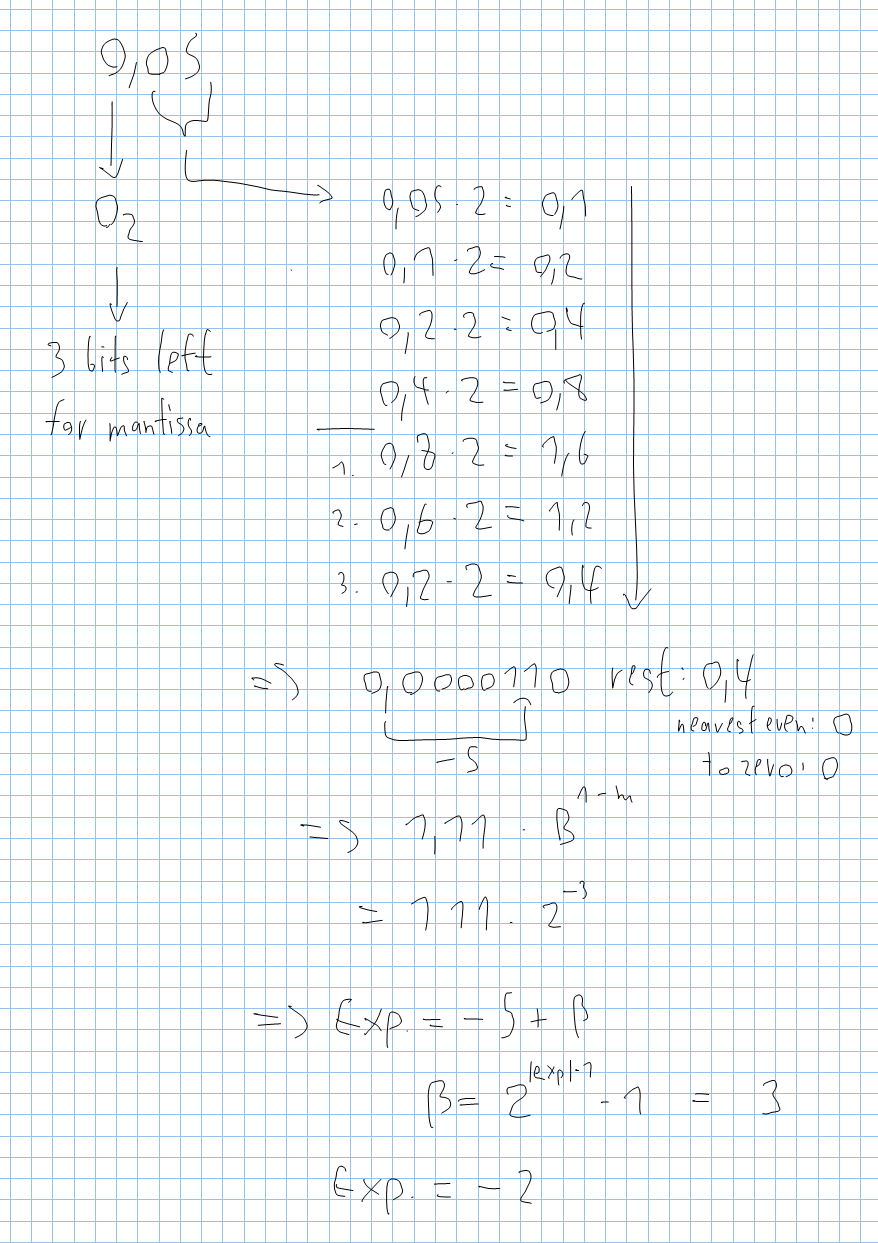 0,05
0,05 · 2 = 0,1
0₂
0,1 · 2 = 0,2
0,2 · 2 = 0,4
3 bits left
for mantissa
0,4 · 2 = 0,8
1. 0,8 · 2 = 1,6
2. 0,6 · 2 = 1,2
3. 0,2 · 2 = 0,4
=> 0,0000110 rest: 0,4
nearest even: 0
to zero: 0
-5
=> 1,11 · β^{1-m}
= 111 · 2^{-3}
=> Exp. = -5 + β
β = 2^{|exp|-1} - 1 = 3
Exp. = -2